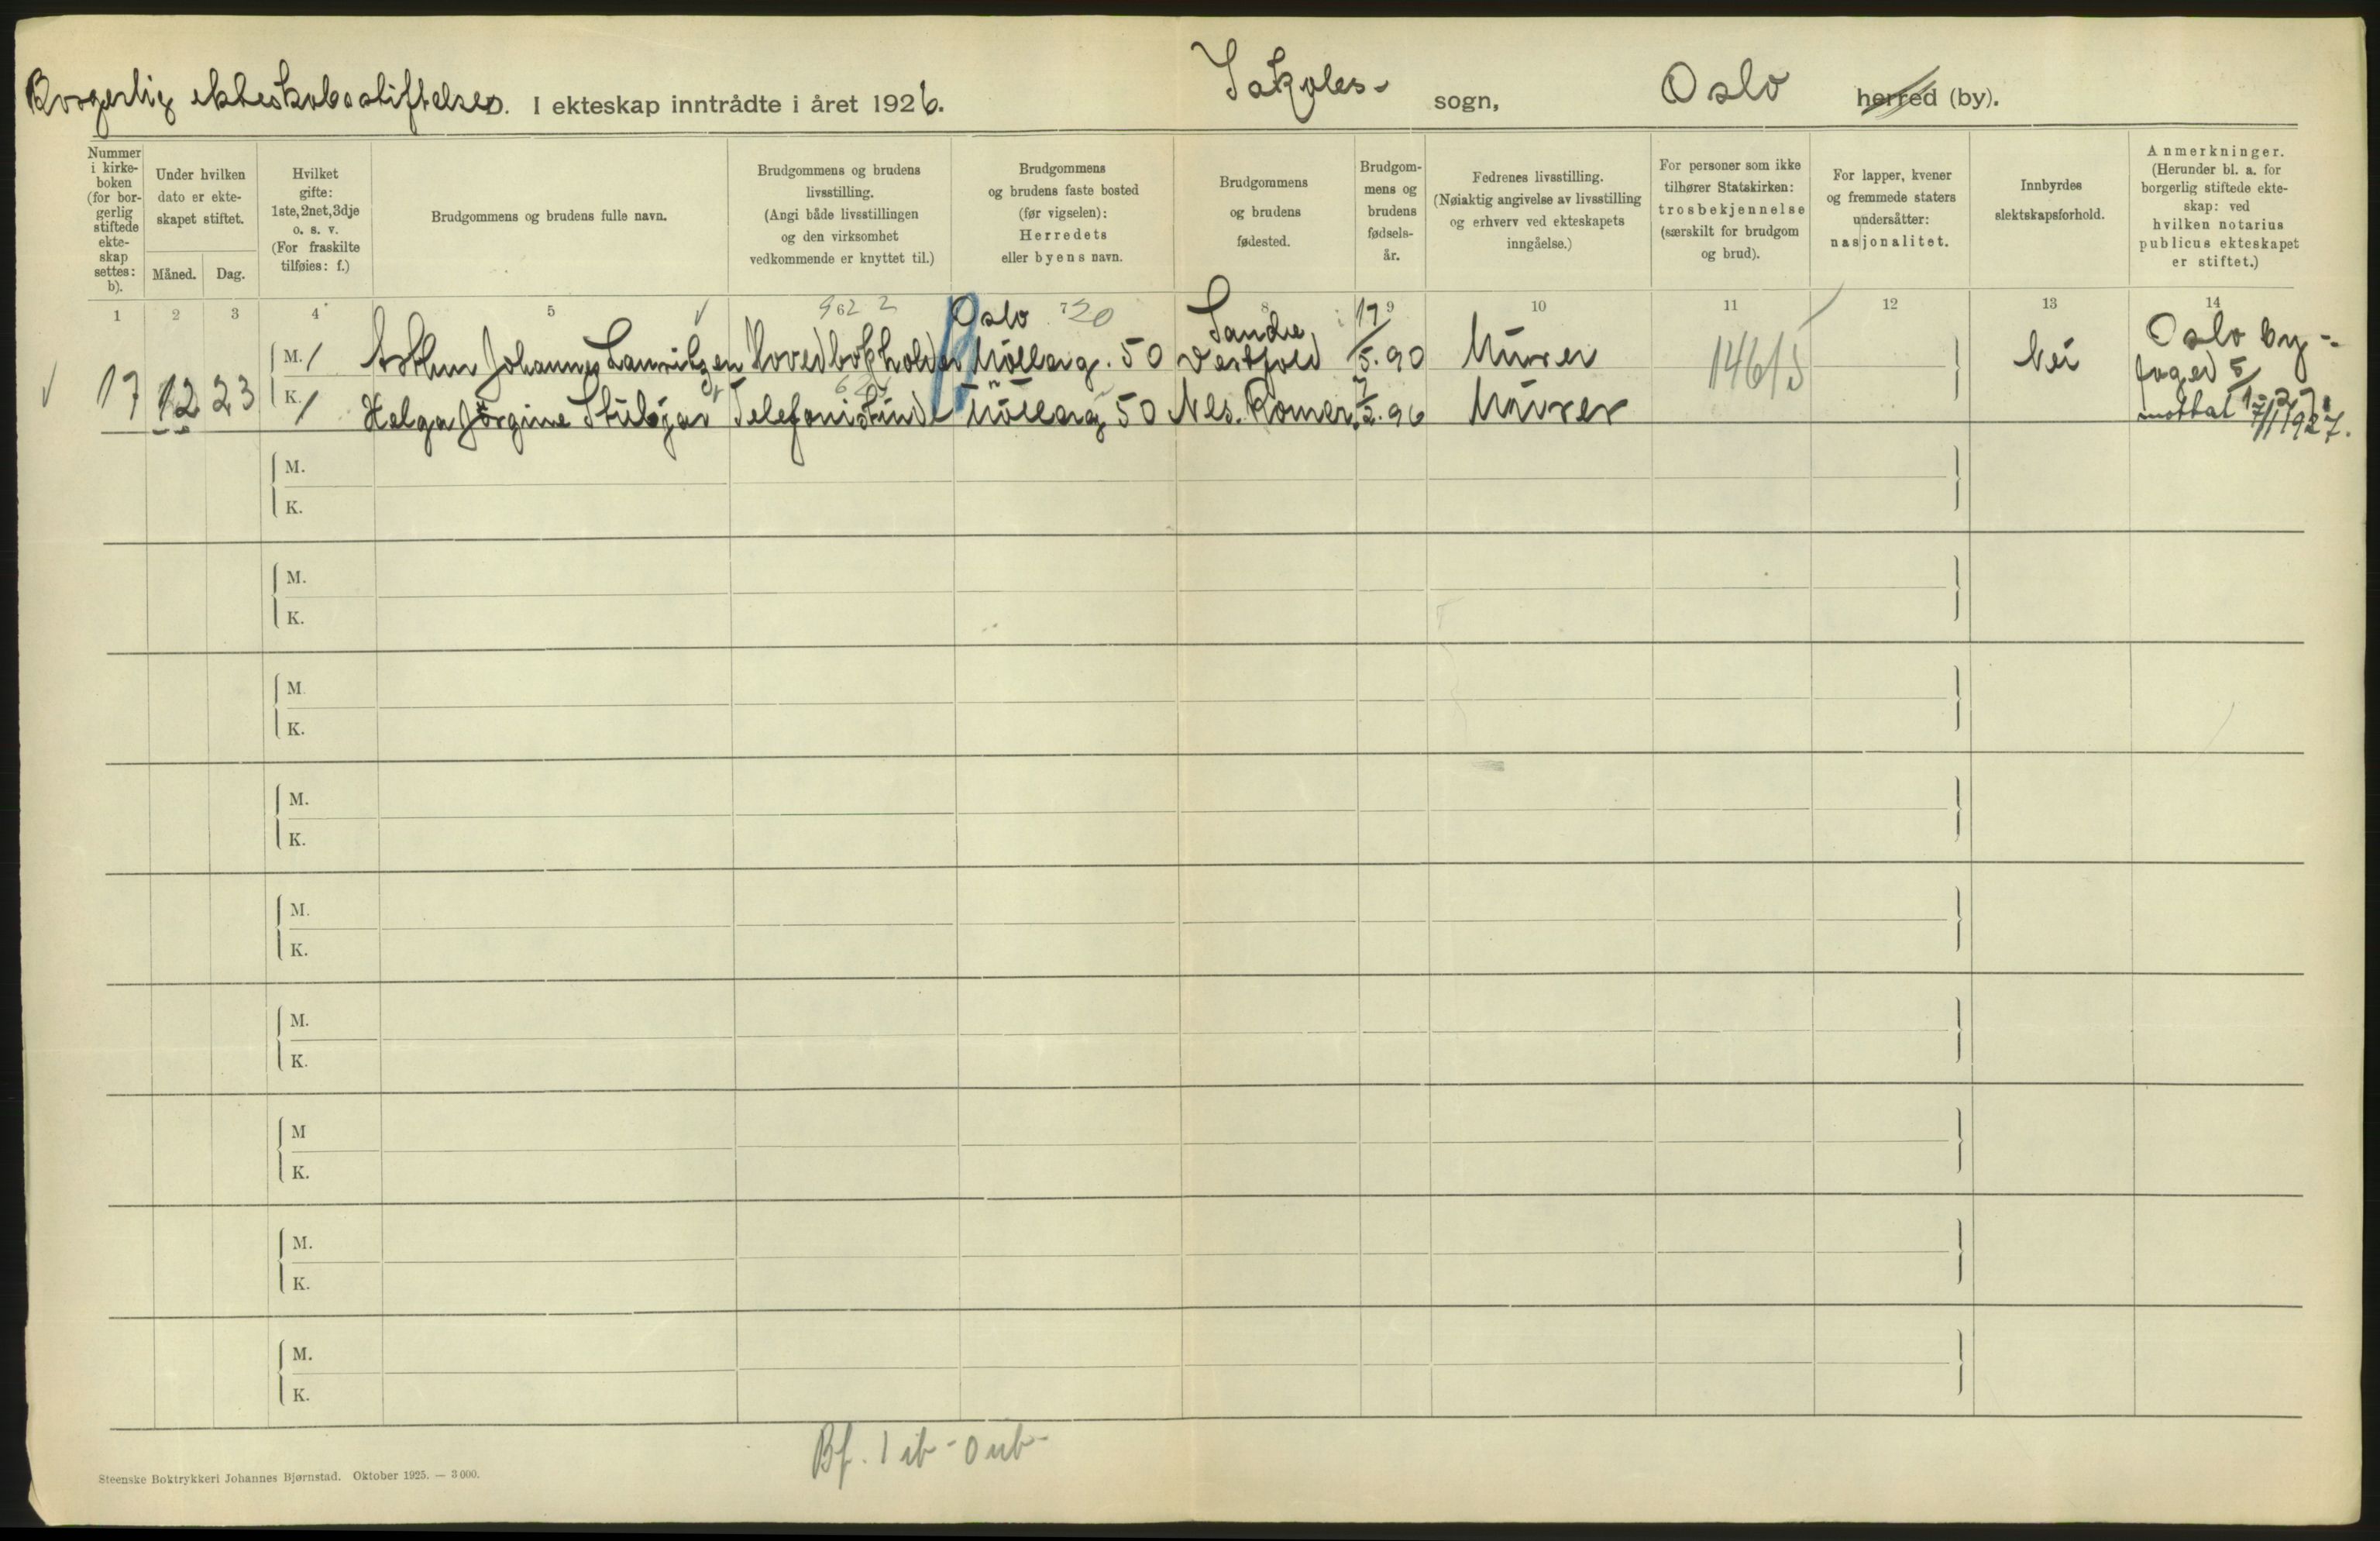 Borgerlig ekteskabsstiftelser. I ekteskap inntrådte i året 1926. Jakobs- sogn, Oslo herred (by).
Nummer i kirke-boken (for bor-gerlig stiftede ekte-skap settes: b).
Under hvilken dato er ekte-skapet stiftet.
Måned. Dag.
Hvilket gifte: 1ste, 2net, 3dje o. s. v. (For fraskilte tilføies: f.)
Brudgommens og brudens fulle navn.
Brudgommens og brudens livsstilling. (Angi både livsstillingen og den virksomhet vedkommende er knyttet til.)
Brudgommens og brudens faste bosted (før vigselen): Herredets eller byens navn.
Brudgommens og brudens fødested.
Brudgom-mens og brudens fødsels-år.
Fedrenes livsstilling. (Nøiaktig angivelse av livsstilling og erhverv ved ekteskapets inngåelse.)
For personer som ikke tilhører Statskirken: trosbekjennelse (særskilt for brudgom og brud).
For lapper, kvener og fremmede staters undersåtter: nasjonalitet.
Innbyrdes slektskapsforhold.
Anmerkninger. (Herunder bl. a. for borgerlig stiftede ekte-skap: ved hvilken notarius publicus ekteskapet er stiftet.)
1 2 3 4 5 962 2 7 20 8 9 10 11 12 13 14
Oslo Sande, 19/ Oslo by-
M. 1 Arthur Johannes Lauritzen Hovedbokholder Möllerg. 50 Vestfold 5. 90 Murer 146/5 Nei foged
17 12 23
K. 1 Helga Jörgine Stubjar Telefonistinde Möllerg. 50 Nes. Romer. 2. 96 Murer mottat 7/1 1927.
M.
K.
M.
K.
M.
K.
M.
K.
M.
K.
M.
K.
M
K.
M.
K.
M.
K.
Bf. 1 ib - 0 ub -
Steenske Boktrykkeri Johannes Bjørnstad. Oktober 1925. — 3000.